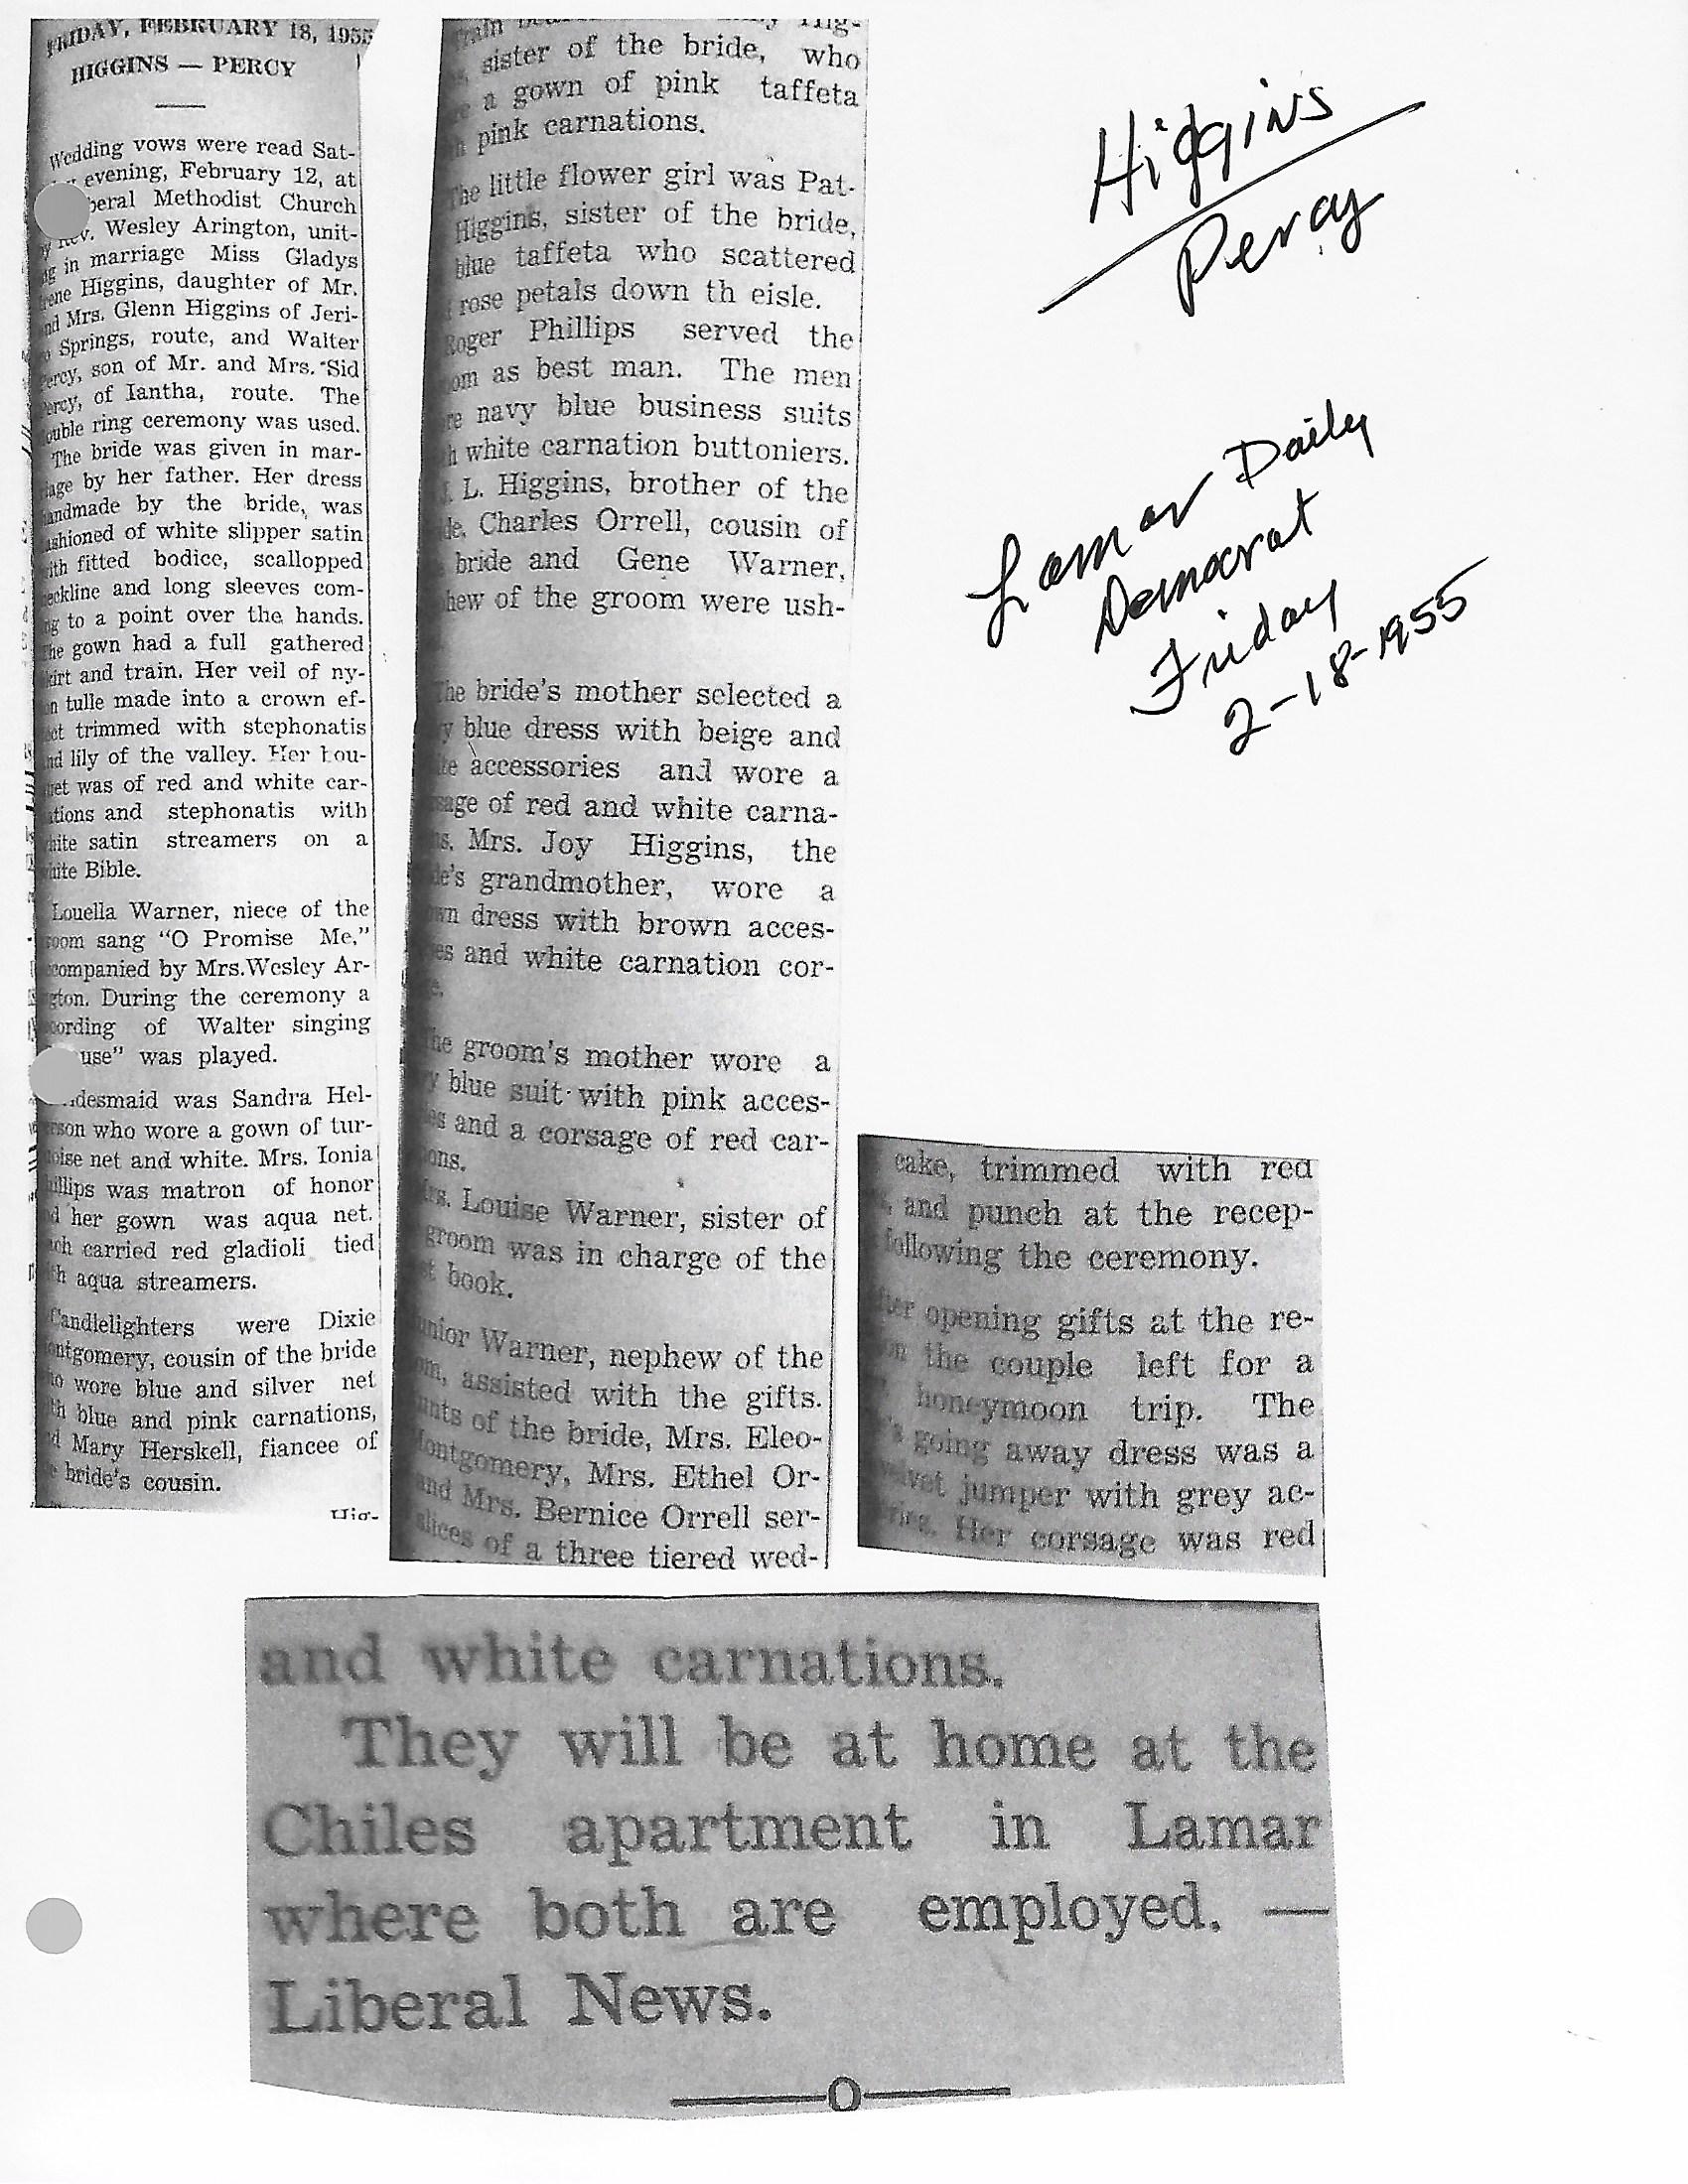 FRIDAY, FEBRUARY 18, 1955
HIGGINS — PERCY
Wedding vows were read Sat-
evening, February 12, at
beral Methodist Church
by Rev. Wesley Arington, unit-
ng in marriage Miss Gladys
rene Higgins, daughter of Mr.
nd Mrs. Glenn Higgins of Jeri-
o Springs, route, and Walter
Percy, son of Mr. and Mrs. Sid
Percy, of Iantha, route. The
ouble ring ceremony was used.
The bride was given in mar-
iage by her father. Her dress
andmade by the bride, was
ashioned of white slipper satin
ith fitted bodice, scallopped
eckline and long sleeves com-
ng to a point over the hands.
he gown had a full gathered
kirt and train. Her veil of ny-
n tulle made into a crown ef-
ct trimmed with stephonatis
nd lily of the valley. Her bou-
uet was of red and white car-
ations and stephonatis with
hite satin streamers on a
hite Bible.
Louella Warner, niece of the
room sang "O Promise Me,"
ccompanied by Mrs.Wesley Ar-
gton. During the ceremony a
cording of Walter singing
use" was played.
idesmaid was Sandra Hel-
rson who wore a gown of tur-
oise net and white. Mrs. Ionia
illips was matron of honor
d her gown was aqua net.
ach carried red gladioli tied
th aqua streamers.
Candlelighters were Dixie
ontgomery, cousin of the bride
ho wore blue and silver net
th blue and pink carnations,
d Mary Herskell, fiancee of
e bride's cousin.
Hig-
Train Hig-
sister of the bride, who
re a gown of pink taffeta
h pink carnations.
The little flower girl was Pat-
Higgins, sister of the bride,
blue taffeta who scattered
rose petals down th eisle.
Roger Phillips served the
oom as best man. The men
re navy blue business suits
h white carnation buttoniers.
L. Higgins, brother of the
de, Charles Orrell, cousin of
bride and Gene Warner,
hew of the groom were ush-
The bride's mother selected a
y blue dress with beige and
te accessories and wore a
sage of red and white carna-
ns. Mrs. Joy Higgins, the
de's grandmother, wore a
wn dress with brown acces-
es and white carnation cor-
e.
he groom's mother wore a
y blue suit with pink acces-
es and a corsage of red car-
ons.
rs. Louise Warner, sister of
groom was in charge of the
t book.
unior Warner, nephew of the
om, assisted with the gifts.
unts of the bride, Mrs. Eleo-
Montgomery, Mrs. Ethel Or-
and Mrs. Bernice Orrell ser-
slices of a three tiered wed-
cake, trimmed with red
, and punch at the recep-
following the ceremony.
fter opening gifts at the re-
on the couple left for a
honeymoon trip. The
's going away dress was a
velvet jumper with grey ac-
ories. Her corsage was red
and white carnations.
They will be at home at the
Chiles apartment in Lamar
where both are employed. —
Liberal News.
Higgins
Percy
Lamar Daily
Democrat
Friday
2-18-1955